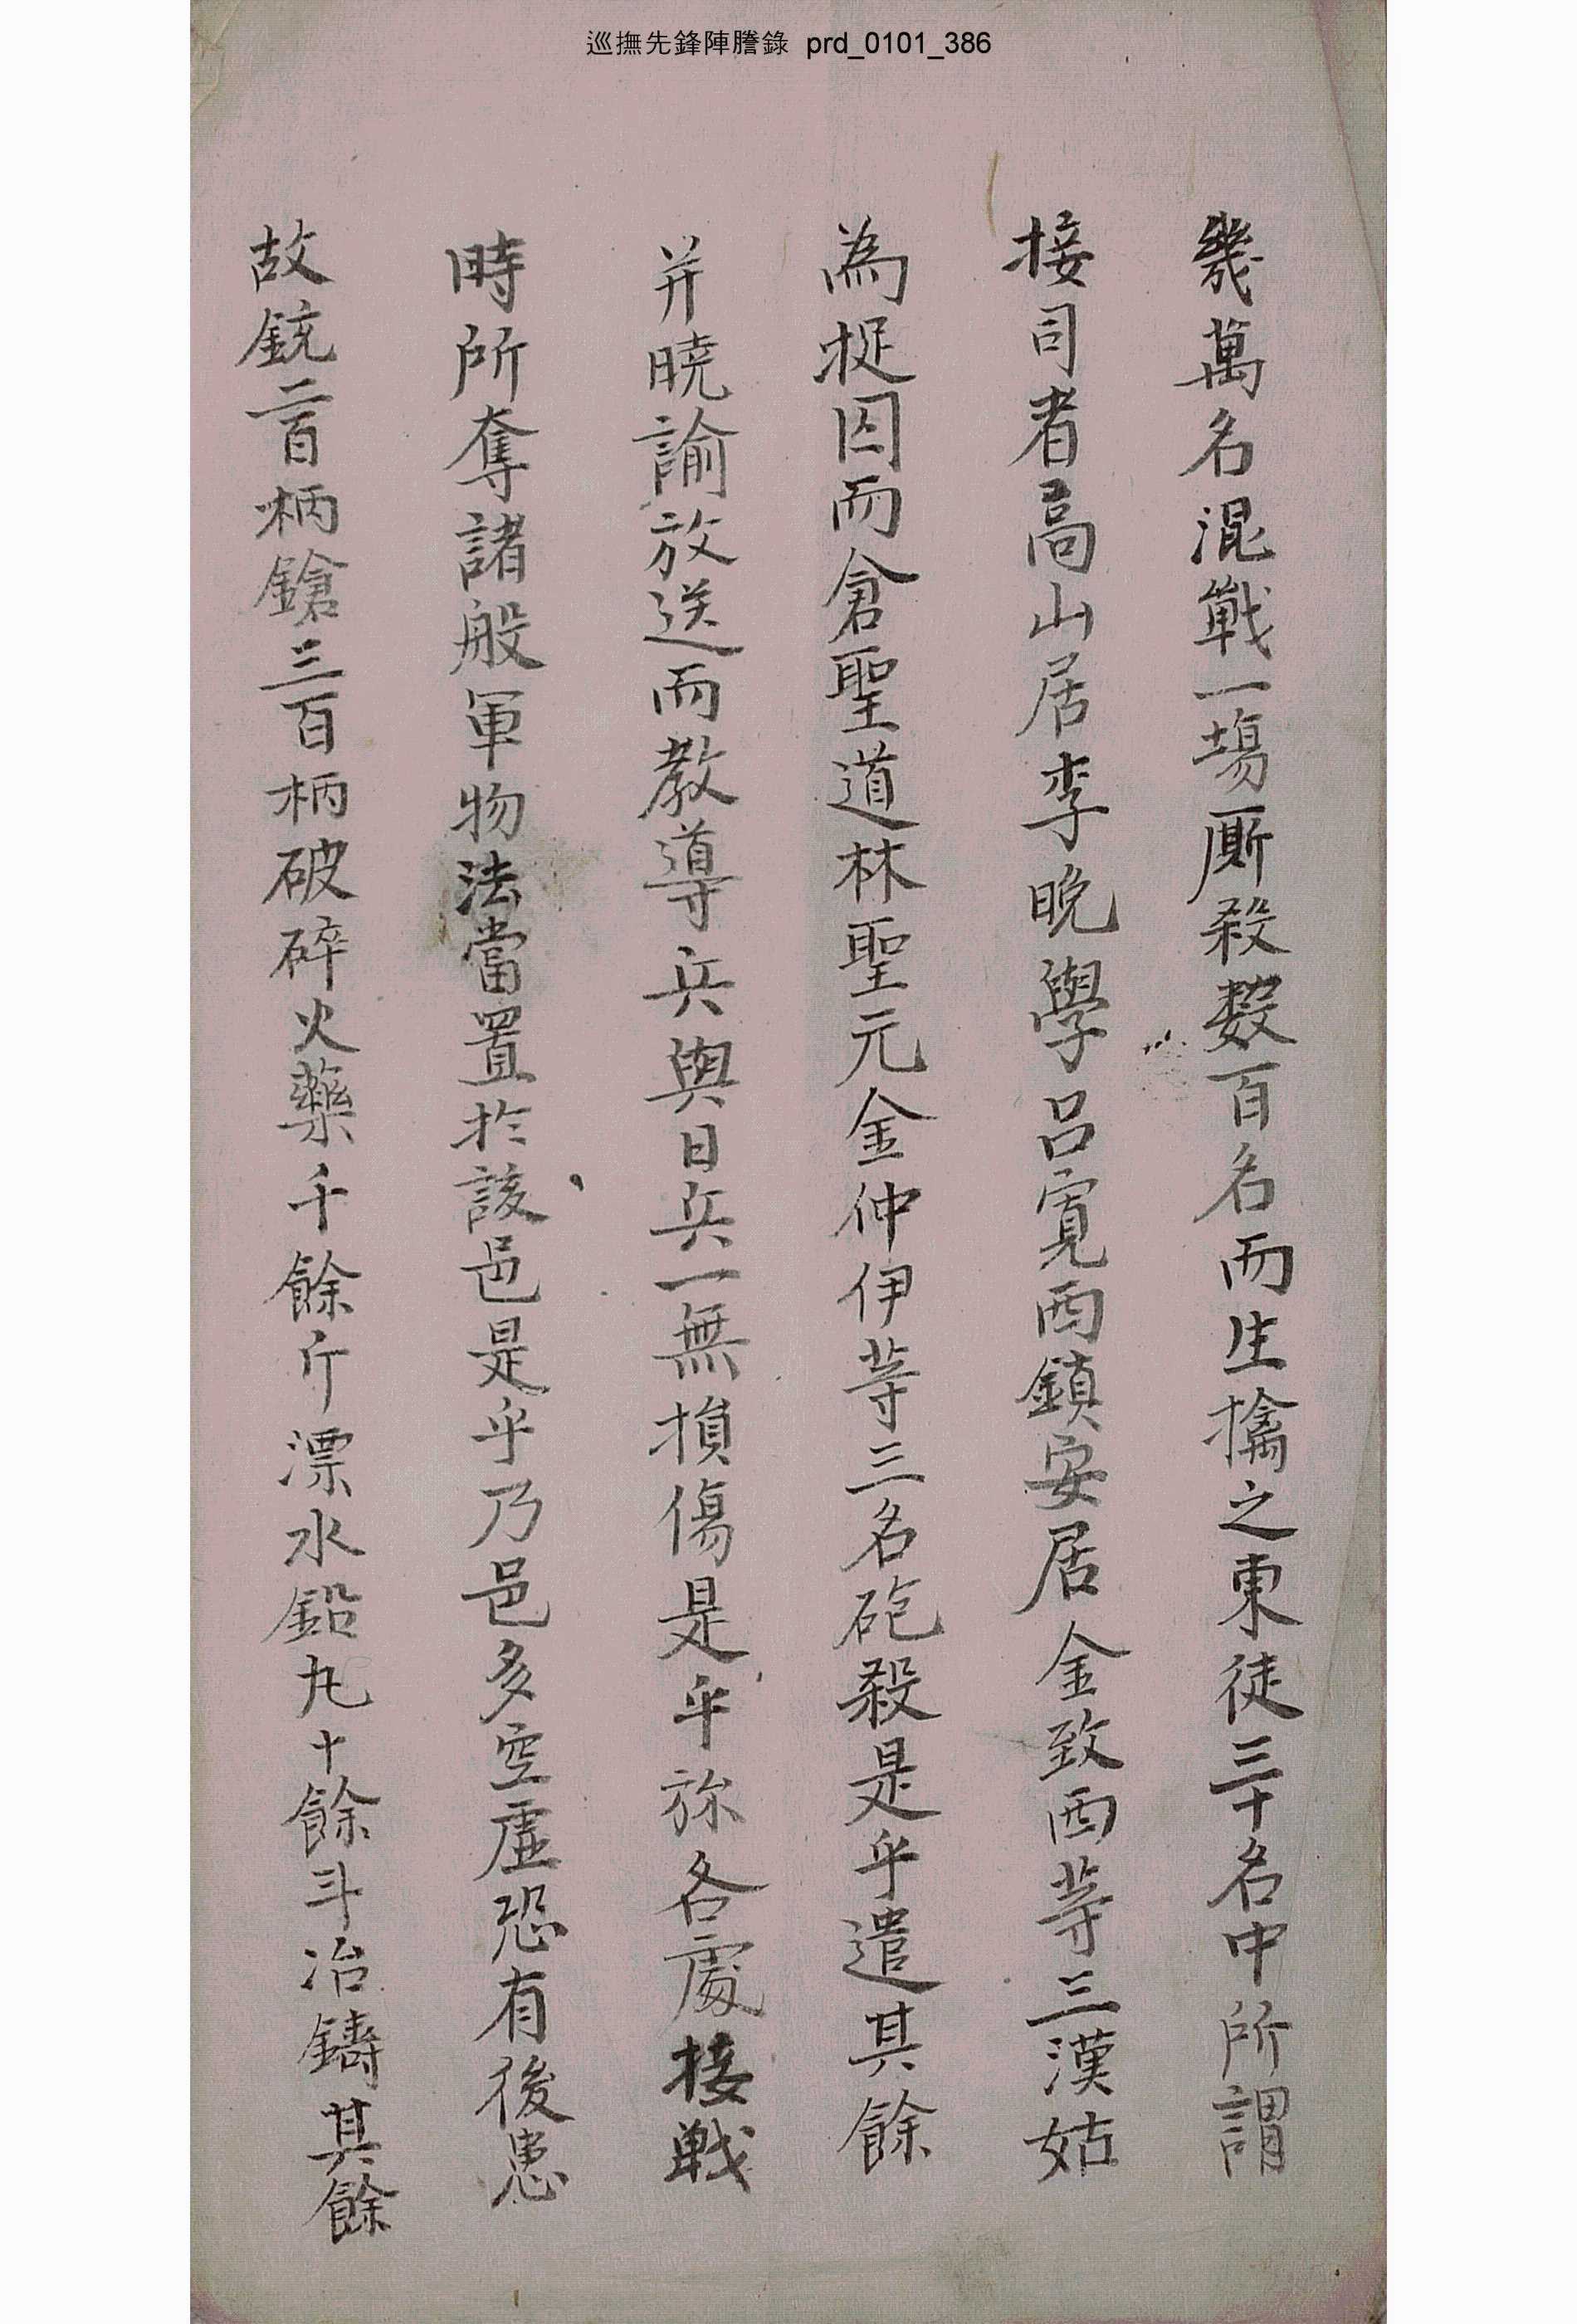 巡撫先鋒陣謄錄 prd_0101_386
幾萬名混戰一塲厮殺數百名而生擒之東徒三十名中所謂
接司者高山居李晩學呂寬西鎮安居金致西等三漢姑
為捉囚而倉聖道林聖元金仲伊等三名砲殺是乎遣其餘
并曉諭放送而教導兵與日兵一無損傷是乎旀各處接戰
時所奪諸般軍物法當置於該邑是乎乃邑多空虛恐有後患
故銃二百柄鎗三百柄破碎火藥千餘斤漂水鉛丸十餘斗冶鑄其餘